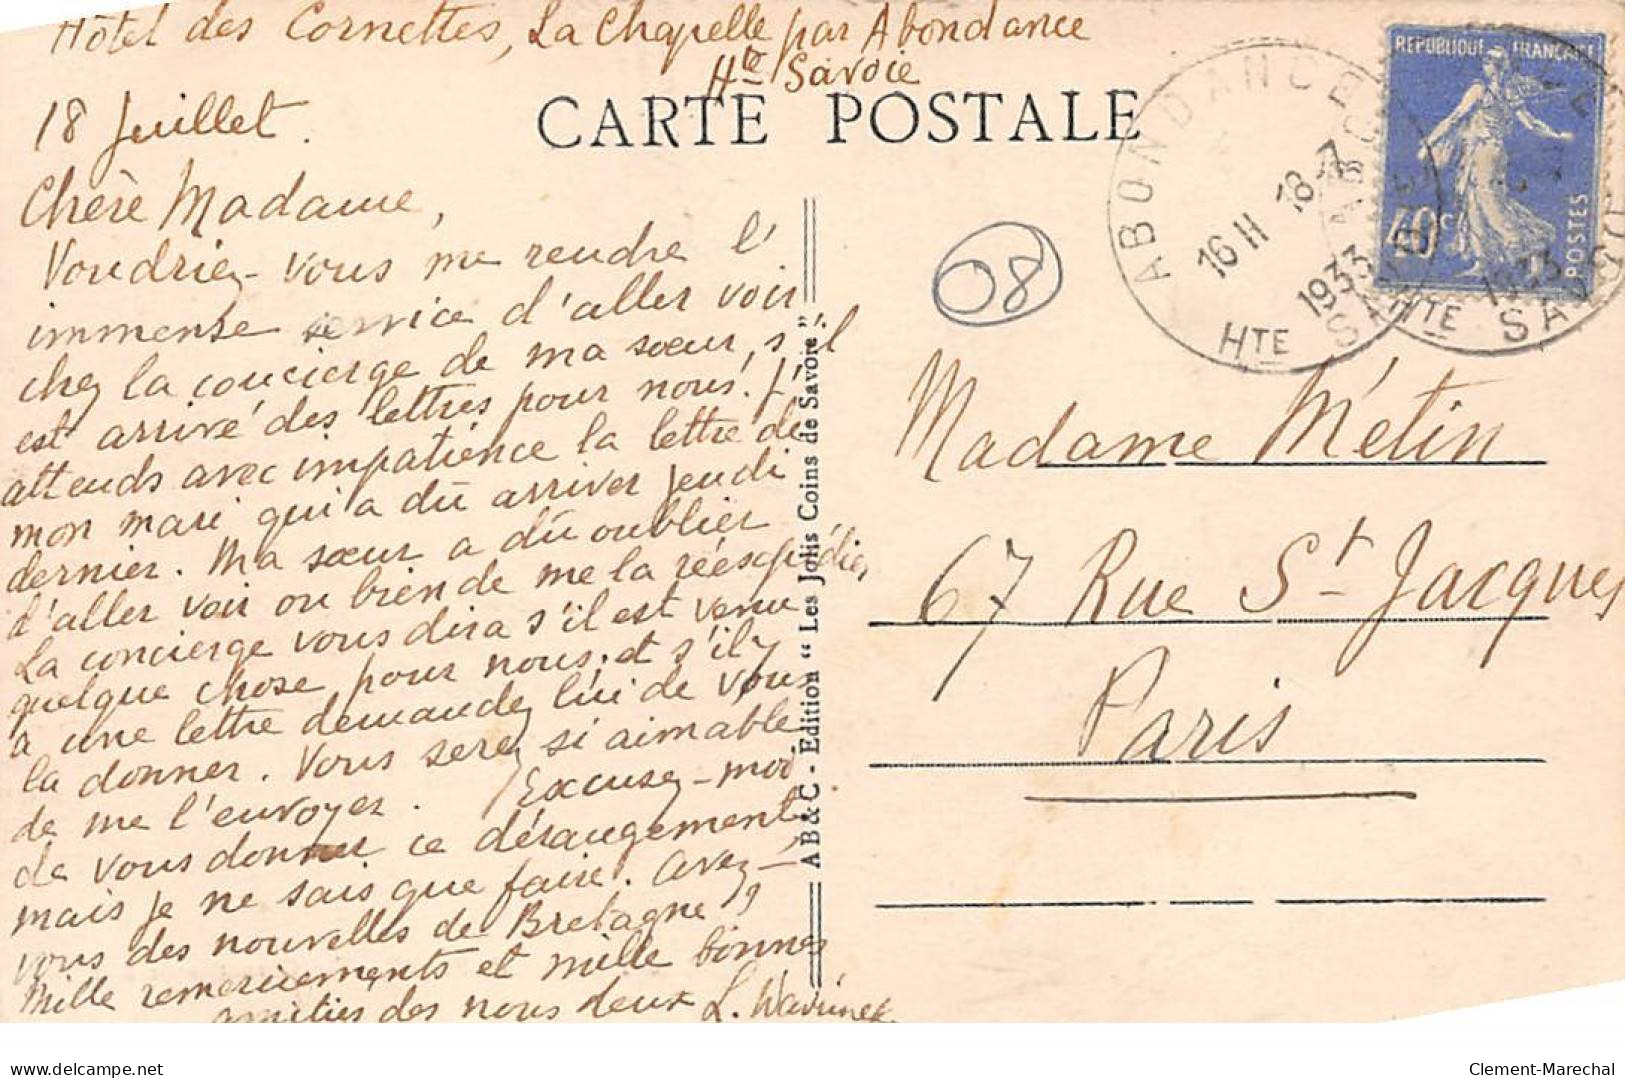 Hôtel des Cornettes, La Chapelle par Abondance
Hte Savoie
18 Juillet.
CARTE POSTALE
Chère Madame,
Voudriez-vous me rendre l'
immense service d'aller voir
chez la concierge de ma sœur, s'il
est arrivé des lettres pour nous. J'
attends avec impatience la lettre de
mon mari qui a dû arriver jeudi
dernier. Ma sœur a dû oublier
d'aller voir ou bien de me la réexpédier
La concierge vous dira s'il est venu
quelque chose pour nous. et s'il y
a une lettre demandez lui de vous
la donner. Vous serez si aimable
de me l'envoyer. Excusez-moi
de vous donner ce dérangement,
mais je ne sais que faire. Avez-
vous des nouvelles de Bretagne?
Mille remerciements et mille bonnes
amitiés des nous deux L.
AB & C - Edition "Les Jolis Coins de Savoie"
08
REPUBLIQUE FRANÇAISE
40c
POSTES
ABONDANCE
16 H 18-7
1933
HTE SAVOIE
1933
HTE SAVOIE
Madame Métin
67 Rue St-Jacques
Paris
delcampe.net
Clement-Marechal